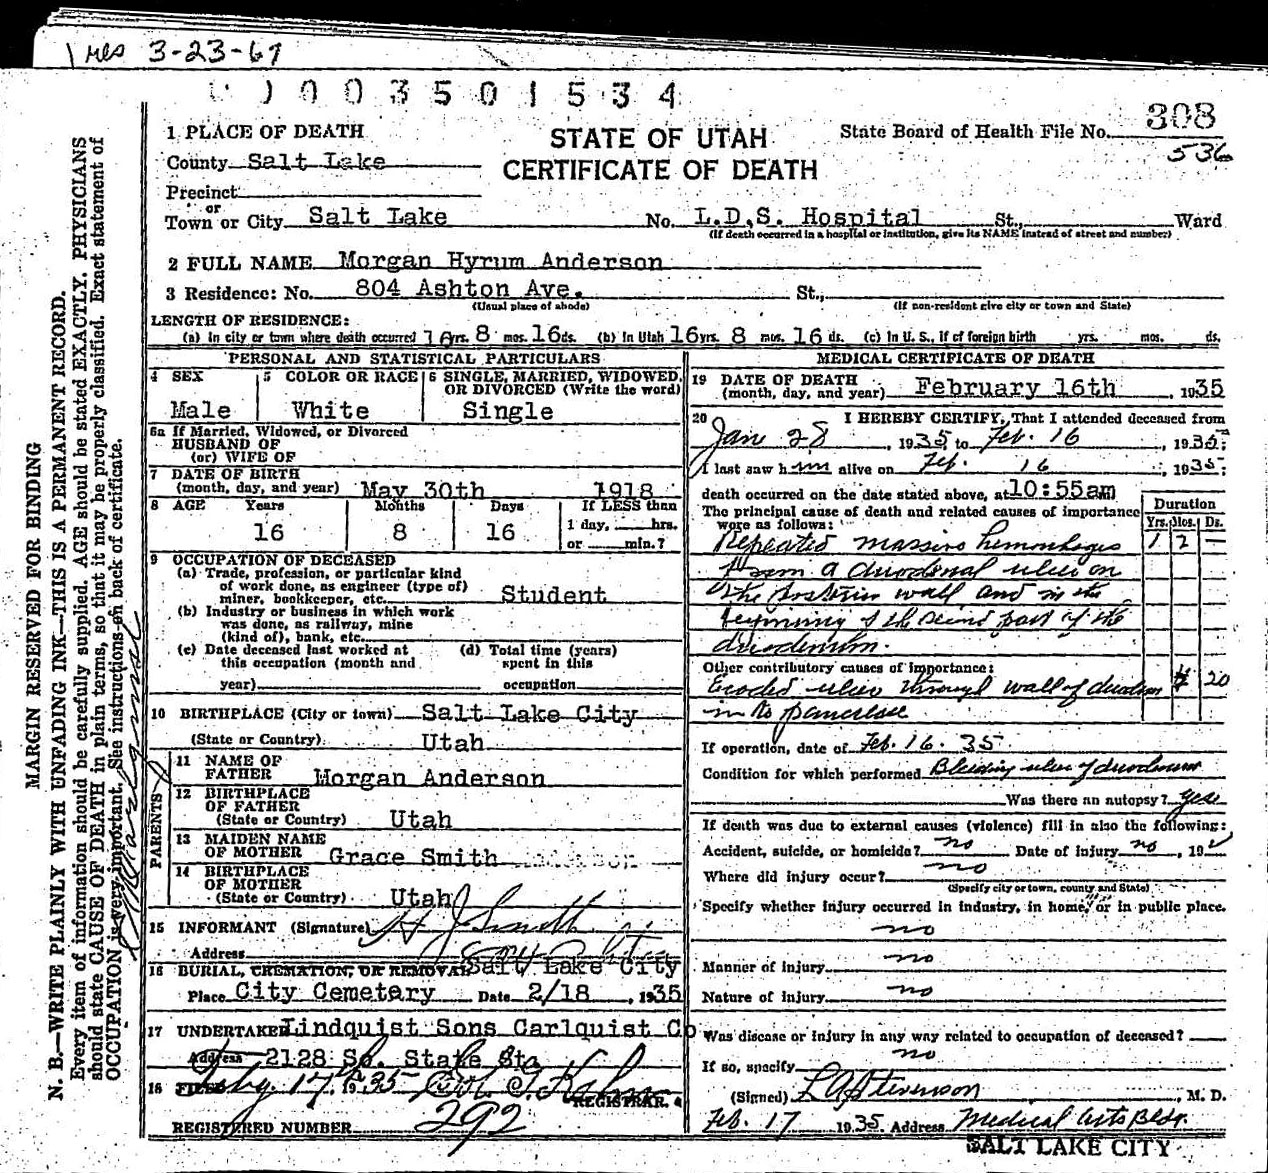 3-23-67
0003501534
1 PLACE OF DEATH
STATE OF UTAH
CERTIFICATE OF DEATH
State Board of Health File No. 308
536
County Salt Lake
Precinct
or
Town or City Salt Lake No. L.D.S. Hospital St., Ward
(If death occurred in a hospital or institution, give its NAME instead of street and number)
2 FULL NAME Morgan Hyrum Anderson
3 Residence: No. 804 Ashton Ave. St.,
(Usual place of abode) (If non-resident give city or town and State)
LENGTH OF RESIDENCE:
(a) In city or town where death occurred 16 yrs. 8 mos. 16 ds. (b) In Utah 16 yrs. 8 mos. 16 ds. (c) In U. S., if of foreign birth yrs. mos. ds.
PERSONAL AND STATISTICAL PARTICULARS
4 SEX
Male
5 COLOR OR RACE
White
6 SINGLE, MARRIED, WIDOWED, OR DIVORCED (Write the word)
Single
6a If Married, Widowed, or Divorced
HUSBAND OF
(or) WIFE OF
7 DATE OF BIRTH
(month, day, and year) May 30th 1918
8 AGE Years Months Days If LESS than
16 8 16 1 day, hrs.
or min.?
9 OCCUPATION OF DECEASED
(a) Trade, profession, or particular kind
of work done, as engineer (type of)
miner, bookkeeper, etc. Student
(b) Industry or business in which work
was done, as railway, mine
(kind of), bank, etc.
(c) Date deceased last worked at
this occupation (month and
year)
(d) Total time (years)
spent in this
occupation
10 BIRTHPLACE (City or town) Salt Lake City
(State or Country) Utah
PARENTS
11 NAME OF
FATHER Morgan Anderson
12 BIRTHPLACE
OF FATHER
(State or Country) Utah
13 MAIDEN NAME
OF MOTHER Grace Smith Anderson
14 BIRTHPLACE
OF MOTHER
(State or Country) Utah
15 INFORMANT (Signature) H J Smith
Address
16 BURIAL, CREMATION, OR REMOVAL Salt Lake City
Place City Cemetery Date 2/18, 1935
17 UNDERTAKER Lindquist Sons Carlquist Co
Address 2128 So. State St.
18 FILED Feby. 17, 1935
REGISTRAR.
REGISTERED NUMBER 292
MEDICAL CERTIFICATE OF DEATH
19 DATE OF DEATH
(month, day, and year) February 16th, 1935
20 I HEREBY CERTIFY, That I attended deceased from
Jan 28, 1935, to Feb. 16, 1935
I last saw him alive on Feb. 16, 1935;
death occurred on the date stated above, at 10:55am
The principal cause of death and related causes of importance
were as follows:
Duration
Yrs. Mos. Ds.
Repeated massive hemorrhages 1 2 —
from a duodenal ulcer on
the posterior wall and in the
beginning of the second part of the
duodenum.
Other contributory causes of importance:
Eroded ulcer through wall of duodenum 20
into pancreas
If operation, date of Feb. 16. 35
Condition for which performed Bleeding ulcer of duodenum
Was there an autopsy? yes
If death was due to external causes (violence) fill in also the following:
Accident, suicide, or homicide? no Date of injury no, 19
Where did injury occur? no
(Specify city or town, county and State)
Specify whether injury occurred in industry, in home, or in public place.
no
Manner of injury no
Nature of injury no
Was disease or injury in any way related to occupation of deceased?
no
If so, specify
(Signed) L A Stevenson, M. D.
Feb. 17 1935 Address Medical Arts Bldg.
SALT LAKE CITY
MARGIN RESERVED FOR BINDING
N. B.—WRITE PLAINLY WITH UNFADING INK—THIS IS A PERMANENT RECORD.
Every item of information should be carefully supplied. AGE should be stated EXACTLY. PHYSICIANS
should state CAUSE OF DEATH in plain terms, so that it may be properly classified. Exact statement of
OCCUPATION is very important. See instructions on back of certificate.